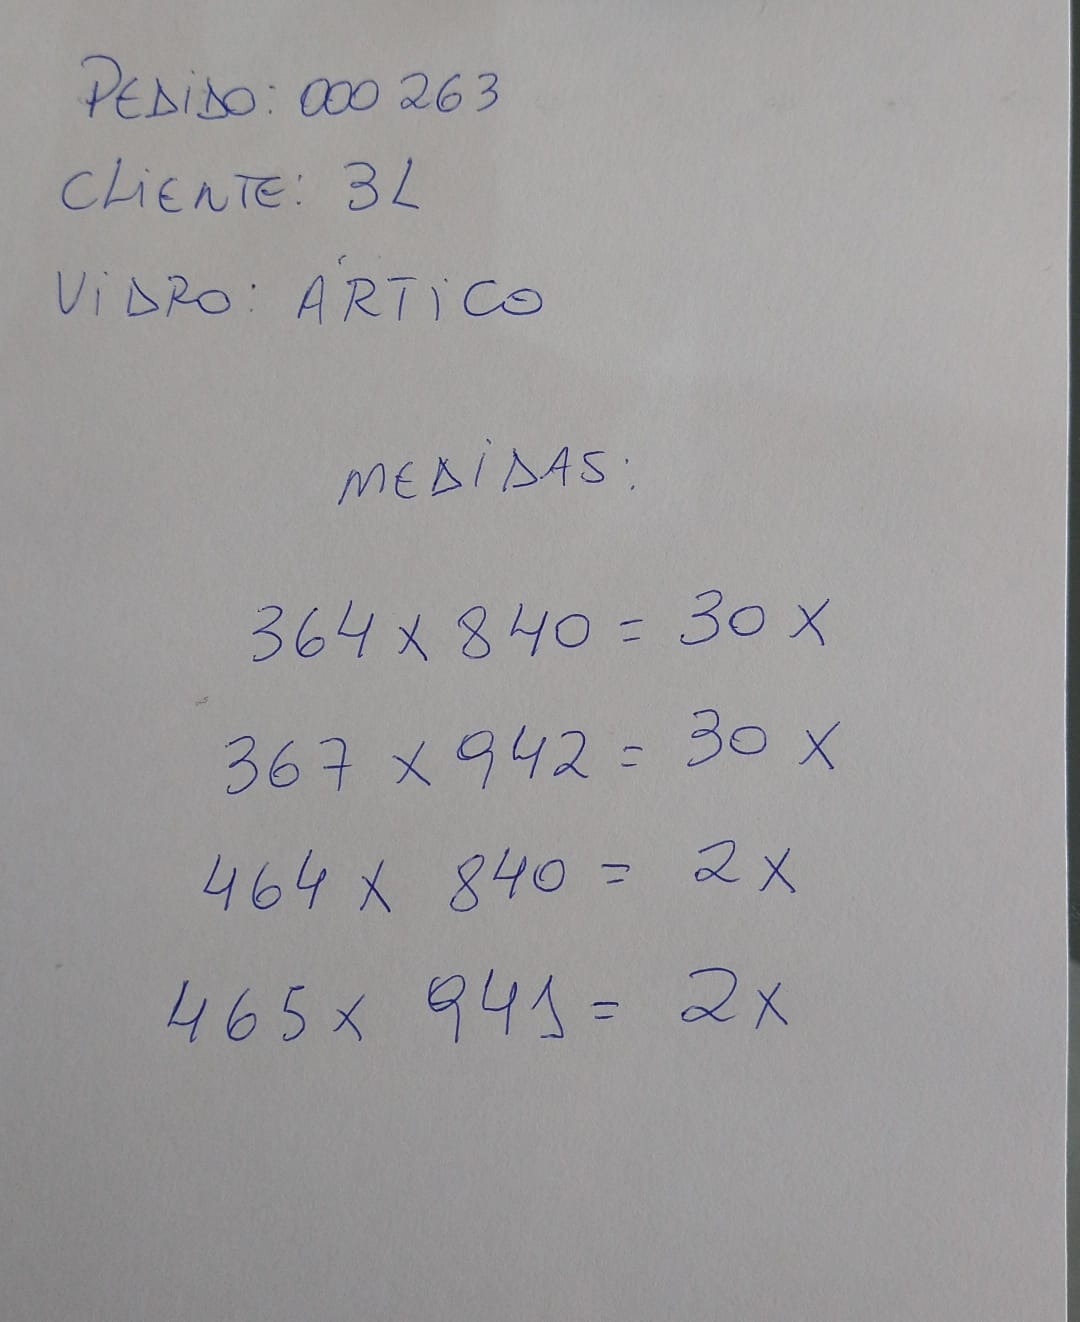 PEDIDO: 000 263
CLIENTE: 3L
VIDRO: ÁRTICO
MEDIDAS:
364 x 840 = 30 x
367 x 942 = 30 x
464 x 840 = 2 x
465 x 941 = 2x